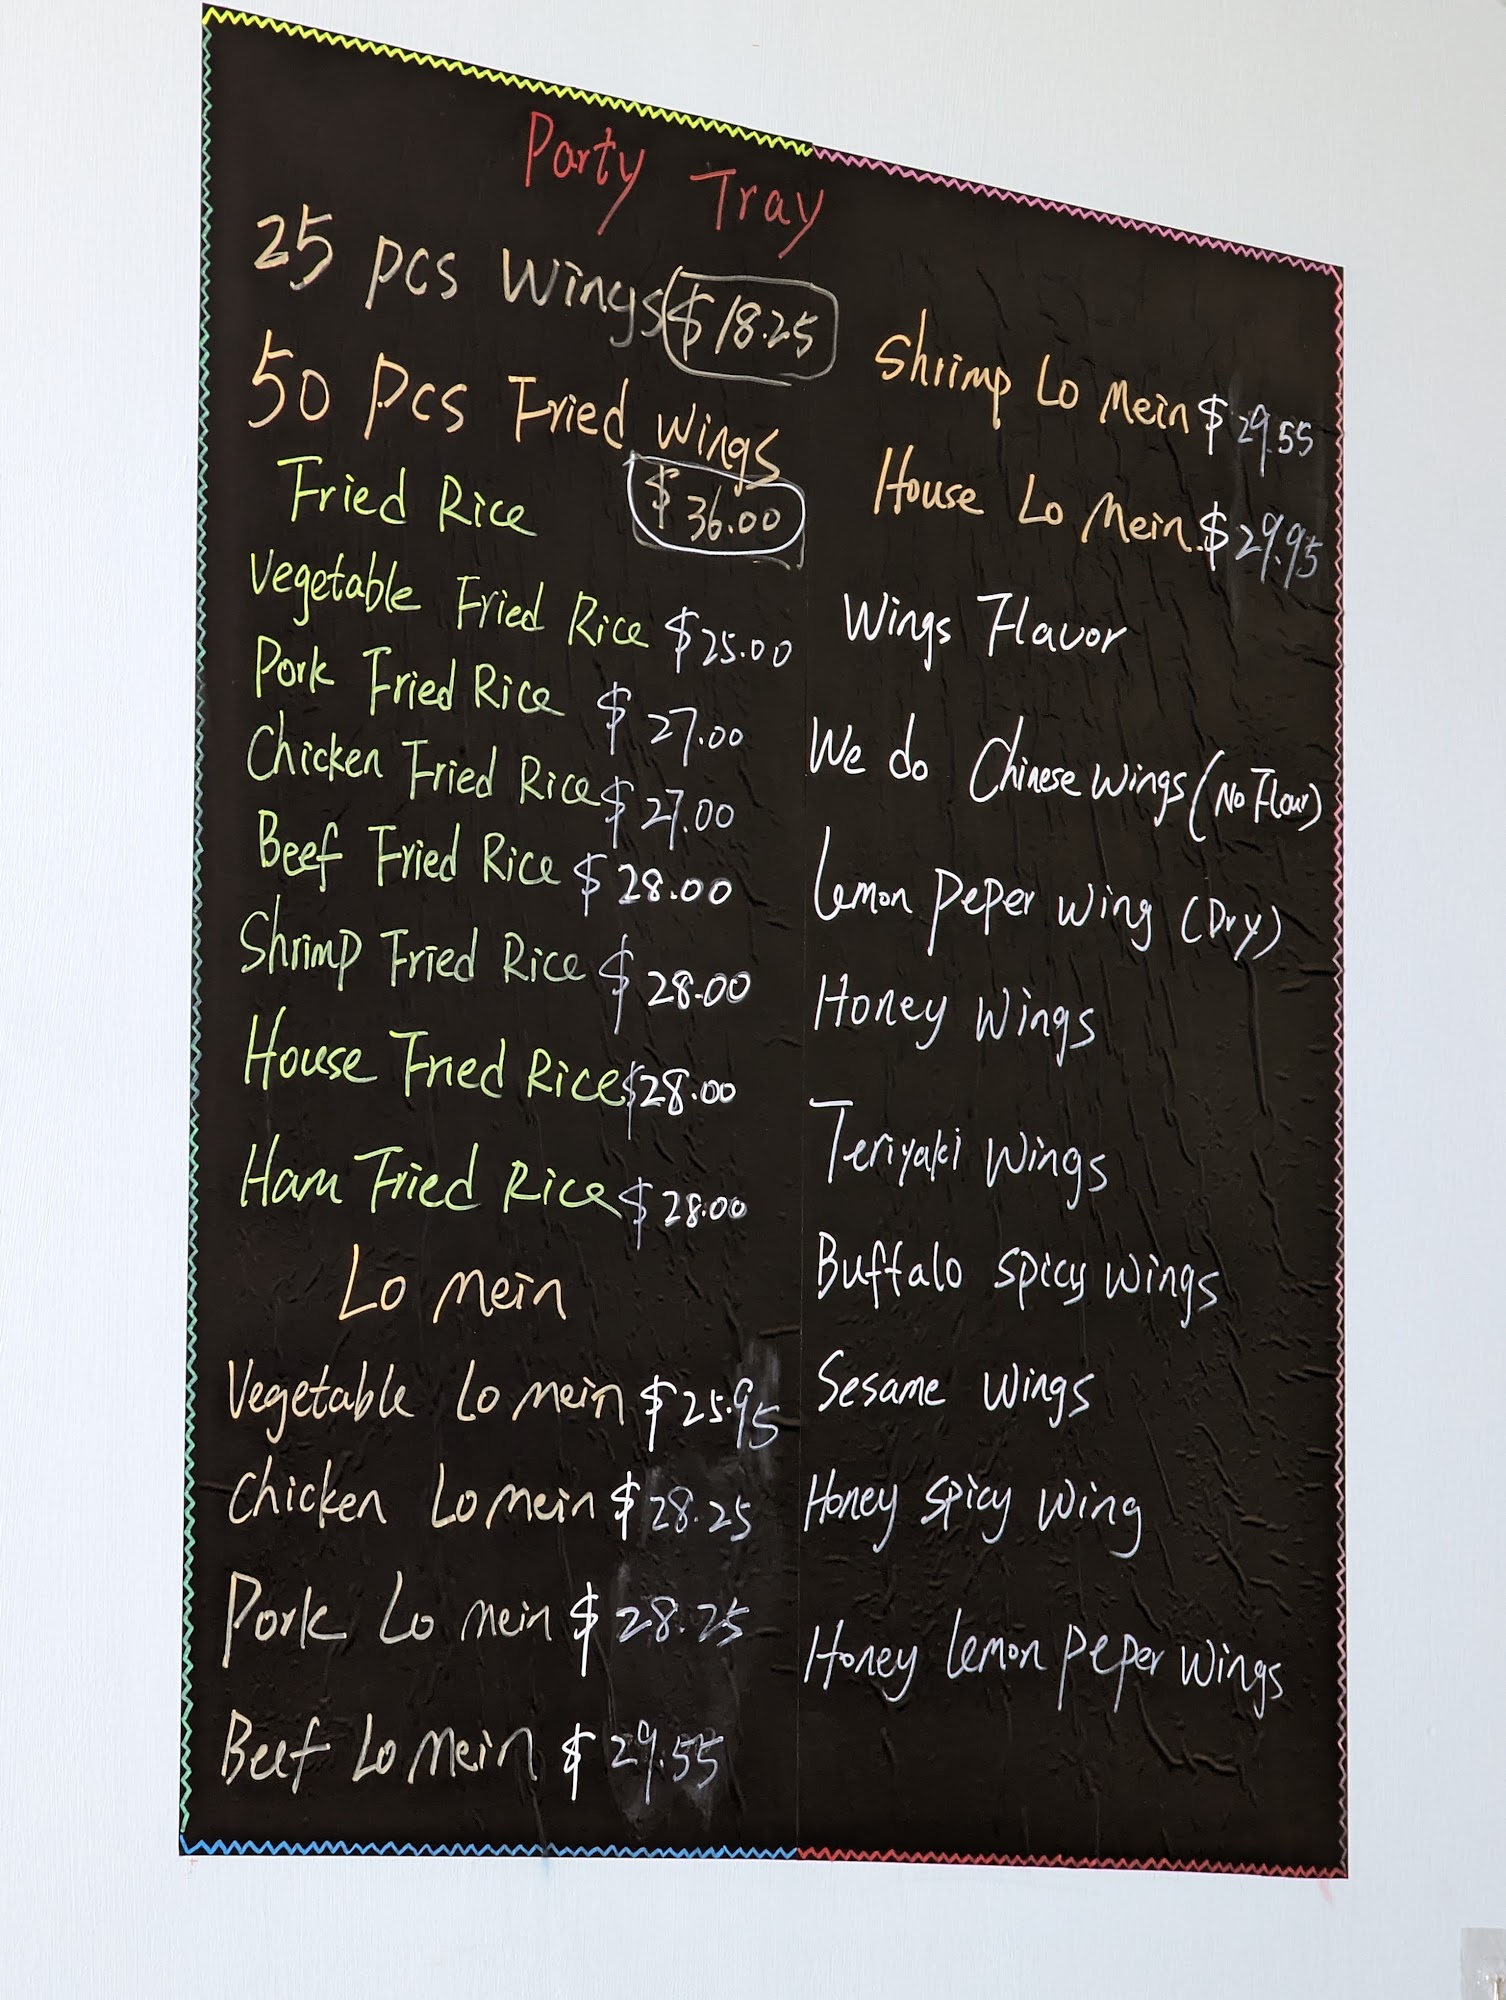 Party Tray
25 pcs Wings $18.25
50 Pcs Fried Wings
$36.00
Fried Rice
Vegetable Fried Rice $25.00
Pork Fried Rice $27.00
Chicken Fried Rice $27.00
Beef Fried Rice $28.00
Shrimp Fried Rice $28.00
House Fried Rice $28.00
Ham Fried Rice $28.00
Lo mein
Vegetable Lo mein $25.95
Chicken Lo mein $28.25
Pork Lo mein $28.25
Beef Lo mein $29.55
Shrimp Lo Mein $29.55
House Lo Mein $29.95
Wings Flavor
We do Chinese Wings (No Flour)
Lemon peper wing (Dry)
Honey Wings
Teriyaki Wings
Buffalo spicy wings
Sesame wings
Honey spicy wing
Honey lemon peper wings